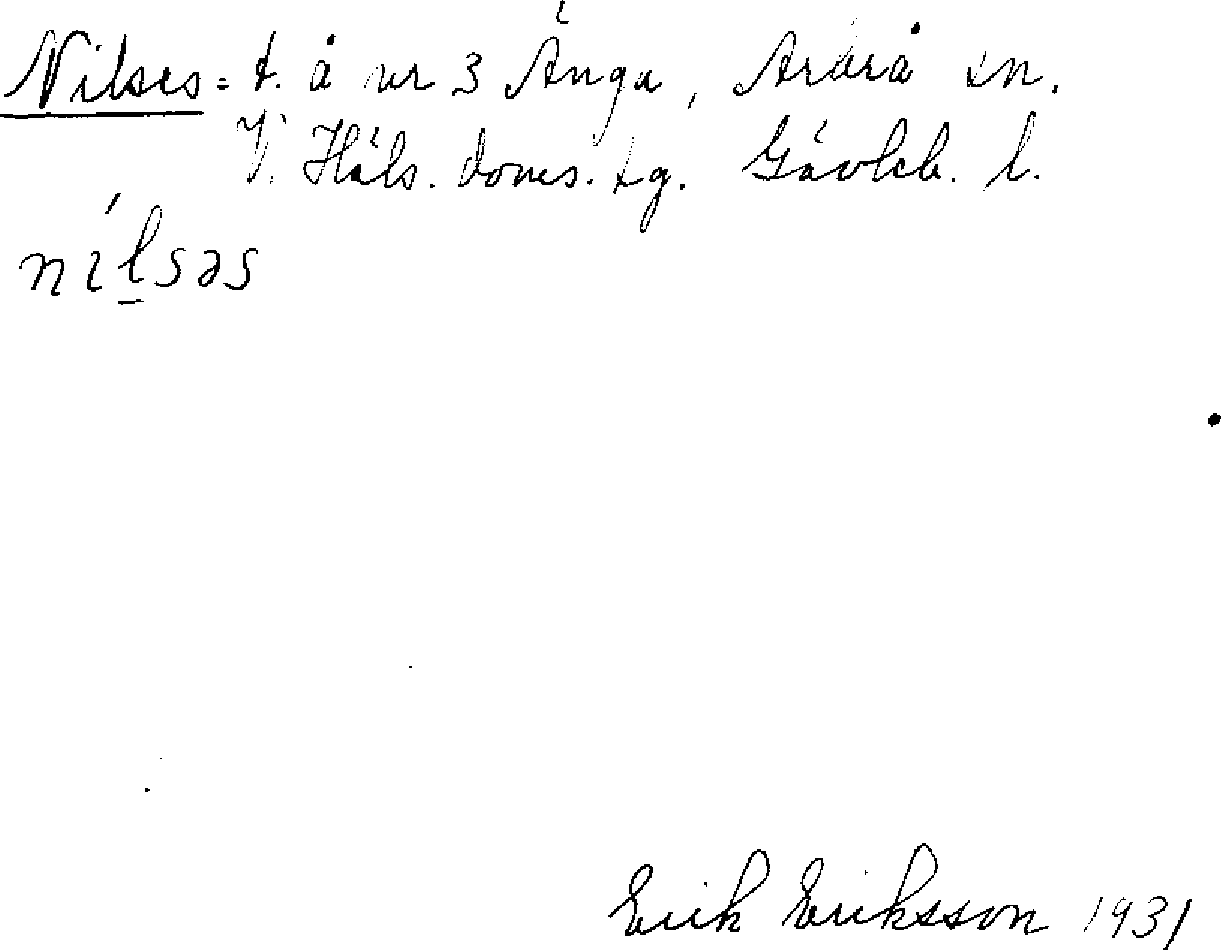 Nilses = t. å nr 3 Änga, Arbrå sn.
V. Häls. doms. tg. Gävleb. l.
nílsəs
Erik Eriksson 1931